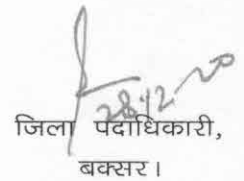 28.12.20
जिला पदाधिकारी,
बक्सर।